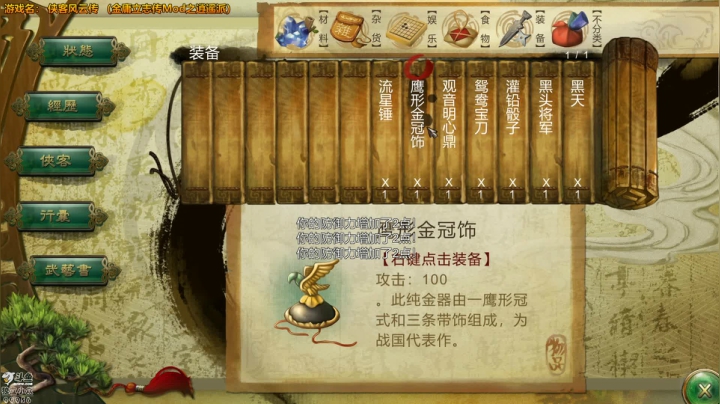 游戏名: 侠客风云传 (金庸立志传Mod之逍遥派)
材料
杂货
娱乐
食物
装备
不分类
1 / 1
装备
狀態
經歷
俠客
行囊
武藝書
流星锤 X 1
鹰形金冠饰 X 1
观音明心鼎 X 1
鸳鸯宝刀 X 1
灌铅骰子 X 1
黑头将军 X 1
黑天 X 1
你的防御力增加了2点!
你的防御力增加了2点!
你的防御力增加了2点!
鹰形金冠饰
【右键点击装备】
攻击: 100
。此纯金器由一鹰形冠
式和三条带饰组成，为
战国代表作。
物品
斗鱼